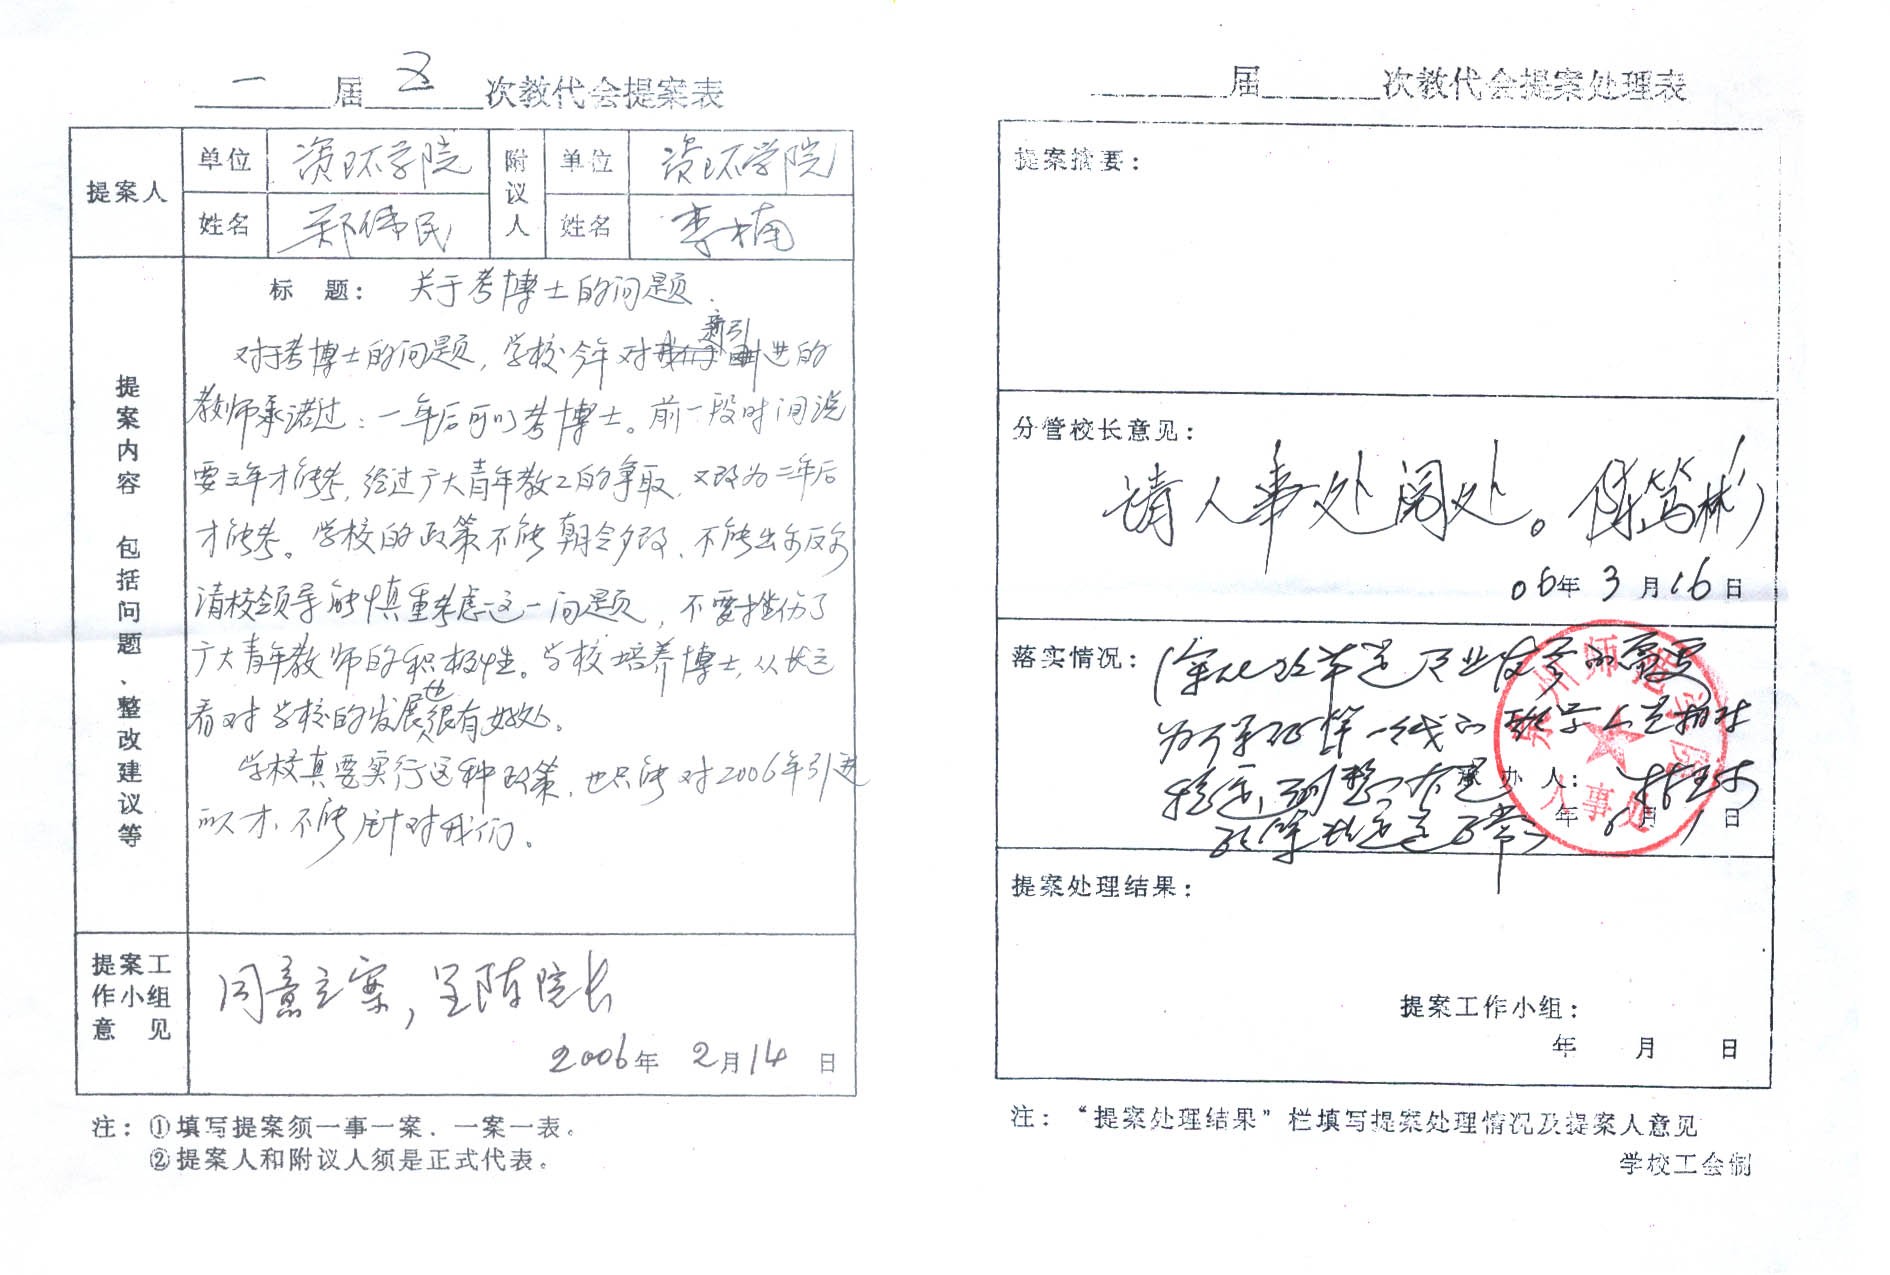 一届五次教代会提案表
提案人 单位 资环学院 附议人 单位 资环学院
姓名 郑伟民 姓名 李楠
提案内容 包括问题、整改建议等
标 题: 关于考博士的问题.
对于考博士的问题,学校今年对新引进的
教师承诺过:一年后可以考博士。前一段时间说
要三年才能考,经过广大青年教工的争取,又改为二年后
才能考。学校的政策不能朝令夕改、不能出尔反尔
请校领导能慎重考虑这一问题,不要挫伤了
广大青年教师的积极性。学校培养博士,从长远
看对学校的发展也很有好处。
学校真要实行这种政策,也只能对2006年引进
的人才,不能针对我们。
提案工作小组意见
同意立案,呈陈院长
2006年 2月14日
注:①填写提案须一事一案、一案一表。
②提案人和附议人须是正式代表。
届 次教代会提案处理表
提案摘要:
分管校长意见:
请人事处阅处。陈笃彬
06年 3月16日
落实情况:
为了保证第一线的教学人员相对
稳定,调整
承办人:
年 6月1日
泉州师范学院
人事处
提案处理结果:
提案工作小组:
年 月 日
注:“提案处理结果”栏填写提案处理情况及提案人意见
学校工会制